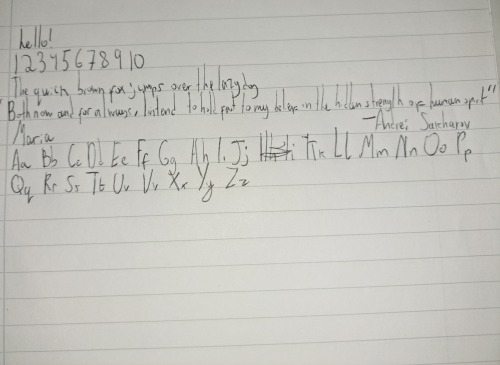 hello!
1 2 3 4 5 6 7 8 9 10
The quick brown fox jumps over the lazy dog
"Both now and for always, I intend to hold fast to my belief in the hidden strength of the human spirit"
—Andrei Sakharov
Maria
Aa Bb Cc Dd Ee Ff Gg Hh Ii Jj Kk Ll Mm Nn Oo Pp
Qq Rr Ss Tt Uu Vv Xx Yy Zz